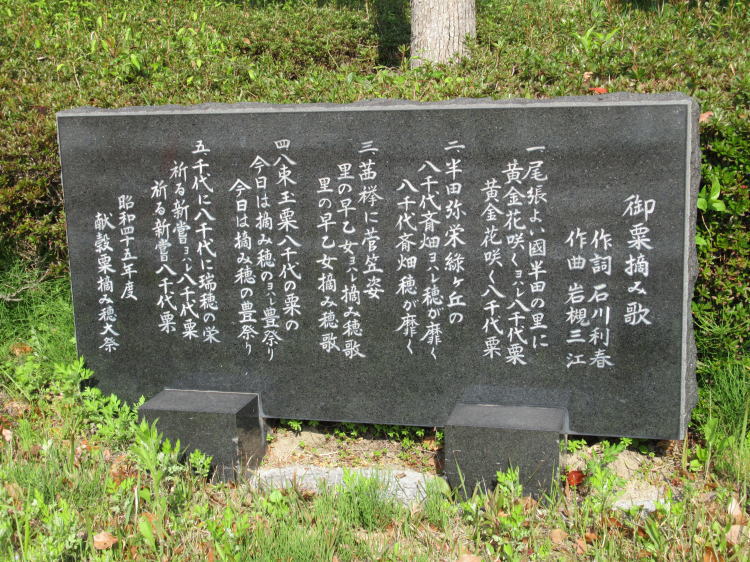 御粟摘み歌
作詞 石川利春
作曲 岩槻三江
一 尾張よい國半田の里に
黄金花咲くヨバレ八千代粟
黄金花咲く八千代粟
二 半田弥栄緑ヶ丘の
八千代斉畑ヨバレ穂が靡く
八千代斉畑穂が靡く
三 茜襷に菅笠姿
里の早乙女ヨバレ摘み穂歌
里の早乙女摘み穂歌
四 八束玉粟八千代の粟の
今日は摘み穂のヨバレ豊祭り
今日は摘み穂の豊祭り
五 千代に八千代に瑞穂の栄
祈る新嘗ヨバレ八千代粟
祈る新嘗八千代粟
昭和四十五年度
献穀粟摘み穂大祭